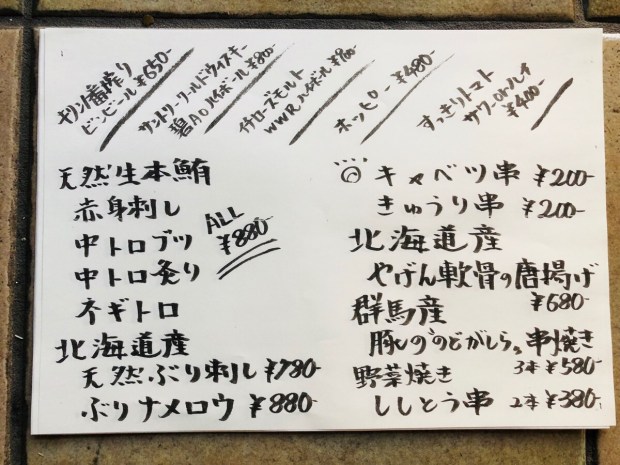 キリン一番搾り
ビンビール ¥650-
サントリーワールドウイスキー
碧Aoハイボール ¥800-
イチローズモルト
WWRハイボール ¥900-
ホッピー ¥480-
すっきりトマト
サワーorハイ
¥400-
天然生本鮪
赤身刺し
中トロブツ
中トロ炙り
ネギトロ
ALL
¥880-
北海道産
天然ぶり刺し ¥780-
ぶりナメロウ ¥880-
◎キャベツ串 ¥200-
きゅうり串 ¥200-
北海道産
やげん軟骨の唐揚げ
¥680-
群馬産
豚ののどがしら串焼き
3本 ¥580-
野菜焼き
ししとう串 2本 ¥380-